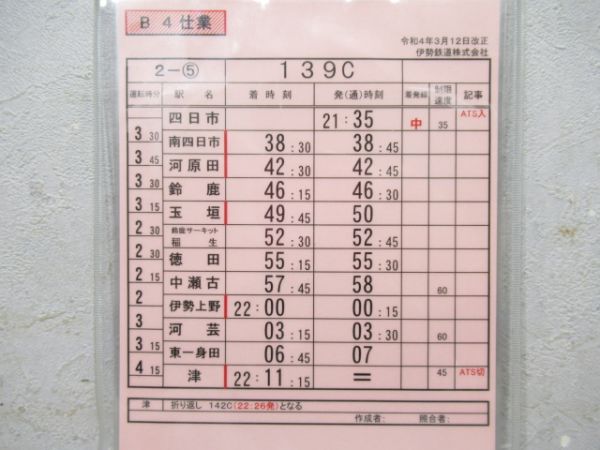 B 4仕業
令和4年3月12日改正
伊勢鉄道株式会社
2-⑤ 139C
運転時分 駅 名 着時刻 発(通)時刻 着発線 制限速度 記事
四日市 21:35 中 35 ATS入
3 30
南四日市 38:30 38:45
3 45
河原田 42:30 42:45
3 30
鈴鹿 46:15 46:30
3 15
玉垣 49:45 50
2 30
鈴鹿サーキット稲生 52:30 52:45
2 30
徳田 55:15 55:30
2 15
中瀬古 57:45 58 60
2
伊勢上野 22:00 00:15
3
河芸 03:15 03:30 60
3 15
東一身田 06:45 07
4 15
津 22:11:15 = 45 ATS切
津 折り返し 142C(22:26発)となる
作成者: 照合者: